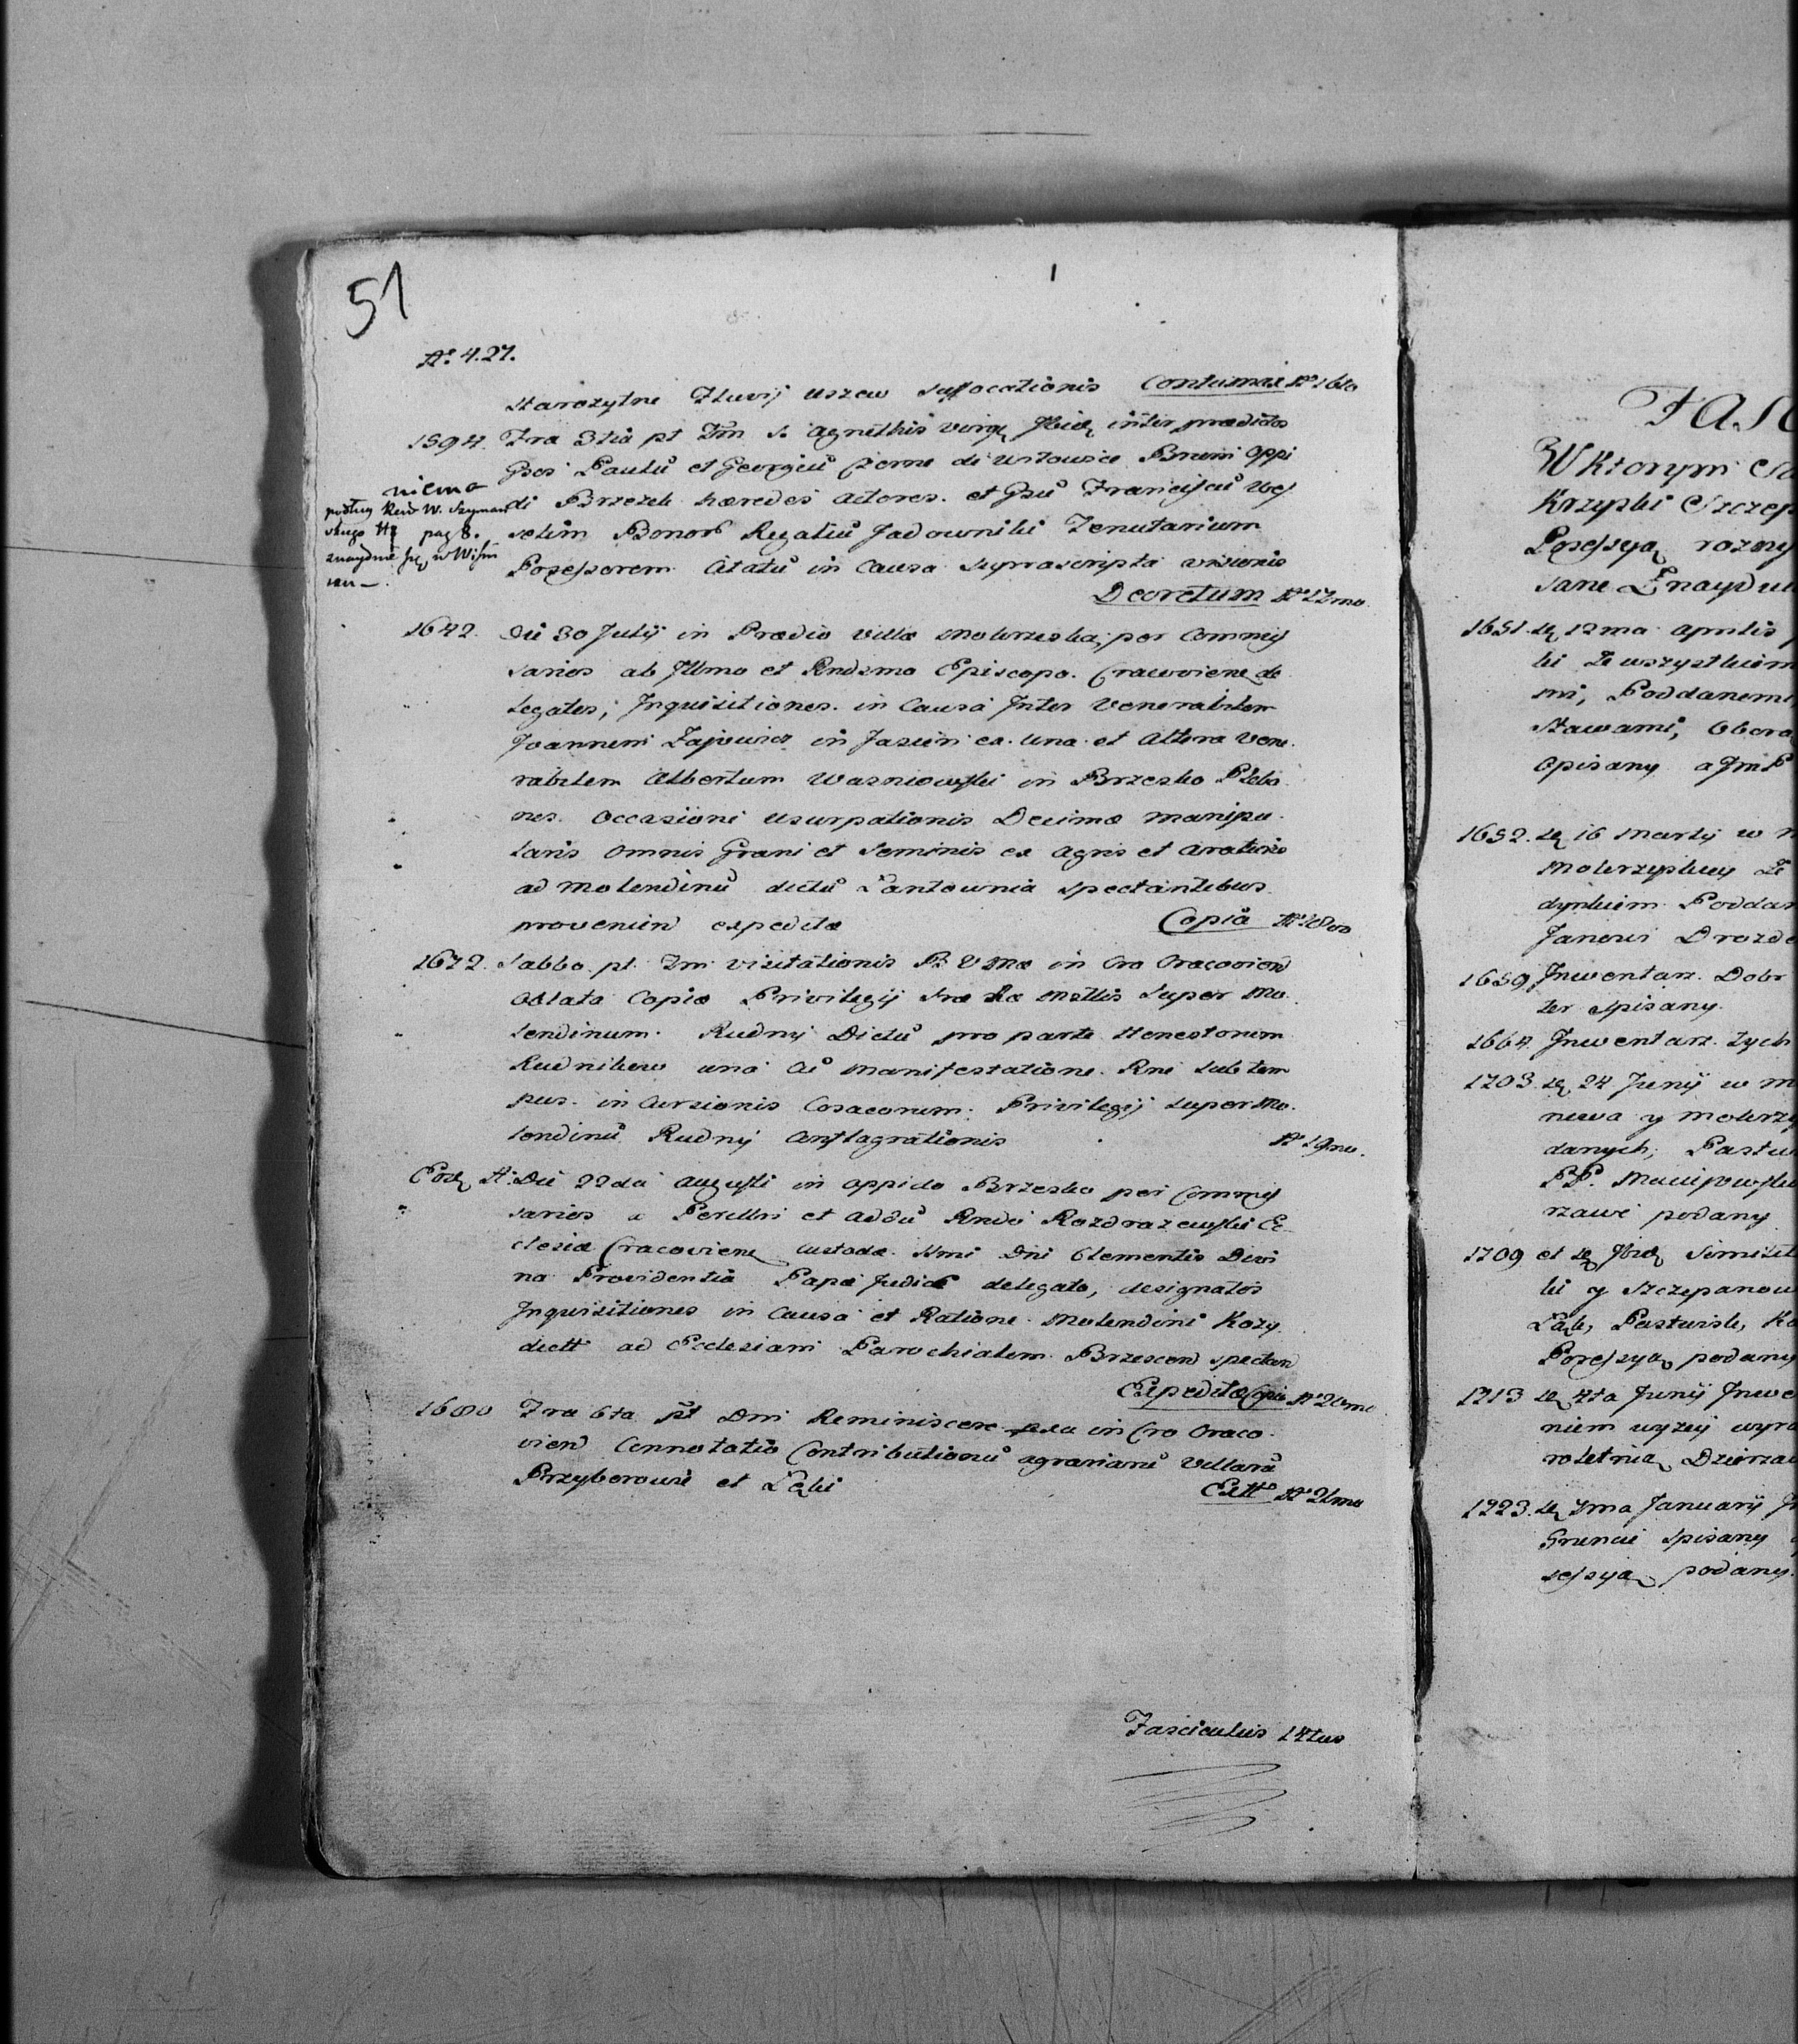 51
Nº 4.27.
starozytne Fluvij uszew suffocationis Contumax Nº 16to
1594. Fra 3tia pt Fm S. Agnethis virg. Ibid. inter praedictos
Gsos Paulū et Georgiū Czerne de Witowice Brueni Oppi
di Brzezek haeredes Actores. et Gsū Franciscū Wes
selim Bonorū Regaliū Jadowniki Tenutarium
Possessorem Citatū in Causa suprascripta visionis
Decretum Nº 17mo
niema
podług Rew W. Szyman
skiego pag 8.
znayduie się w Wiśni
czu —
1642. Die 30 Julij in Praedio Villae Mokrzeska, per Commis
sarios ab Illmo et Rndsmo Episcopo Cracoviens de
legatos, Inquisitiones in Causa Inter Venerabilem
Joannem Zajowicz in Jasien ex una et Altera Vene
rabilem Albertum Wasniowski in Brzesko Pleba
nos Occasione usurpationis Decimae manipu
laris omnis Grani et Seminis ex Agris et Araturis
ad Molendinū dictū Łantownia spectantibus
provenien expeditae Copia Nº 18vo
1672. Sabbo pt Fm Visitationis B. V Mae in Cro Cracovien
Oblata Copiae Privilegij Srae Rae Mttis super Mo
lendinum Rudny Dictū pro parte Honestorum
Rudnikow una Cū Manifestatione Rne sub tem
pus incursionis Cosacorum Privilegij super Mo
lendinū Rudny Conflagrationis Nº 19no.
Eod. A. Die 22da Augusti in oppido Brzesko per Commis
sarios a Perillri et Addū Rndo Rozdrazewski Ec
clesiae Cracoviens Custode Smi Dni Clementis Divi
na Providentia Papae Judice delegato, designatos
Inquisitiones in Causa et Ratione Molendini Kozy
dictt ad Ecclesiam Parochialem Brzescen spectan
Expeditae Copia Nº 20mo
1680 Fra 6ta pt Dni Reminiscere in Cro Craco
vien Connotatio Contributionū agrariarū Villarū
Przyborowie et Łęki Extt Nº 21mo
Fasciculus 14tus
FAS
W Ktorym
Krzyski Szczep
Possessya rozny
sane Znaydu
1651. d. 12ma Aprilis
ki Ze wszystkiem
mi, Poddanemi
Stawami, Obora
Opisany a JmP
1652. d. 16 Martij w
Mokrzyskiey Ze
dynkiem Poddan
Janowi Drozdo
1659 Inwentarz Dobr
ter spisany.
1664. Inwentarz tych
1703. d. 24 Junij w M
newa y Mokrzy
danych, Pastw
PP. Maciejowski
rzawe podany
1709 et d. Ibid. Simitt
ki y Szczepanow
Łąk, Pastwisk, Ko
Possessya podany
1713 d. 4ta Junij Inwe
niem wyzey wyra
roletnia Dzierzaw
1723. d. 7ma Januarij
Gruncie spisany
sessya podany.